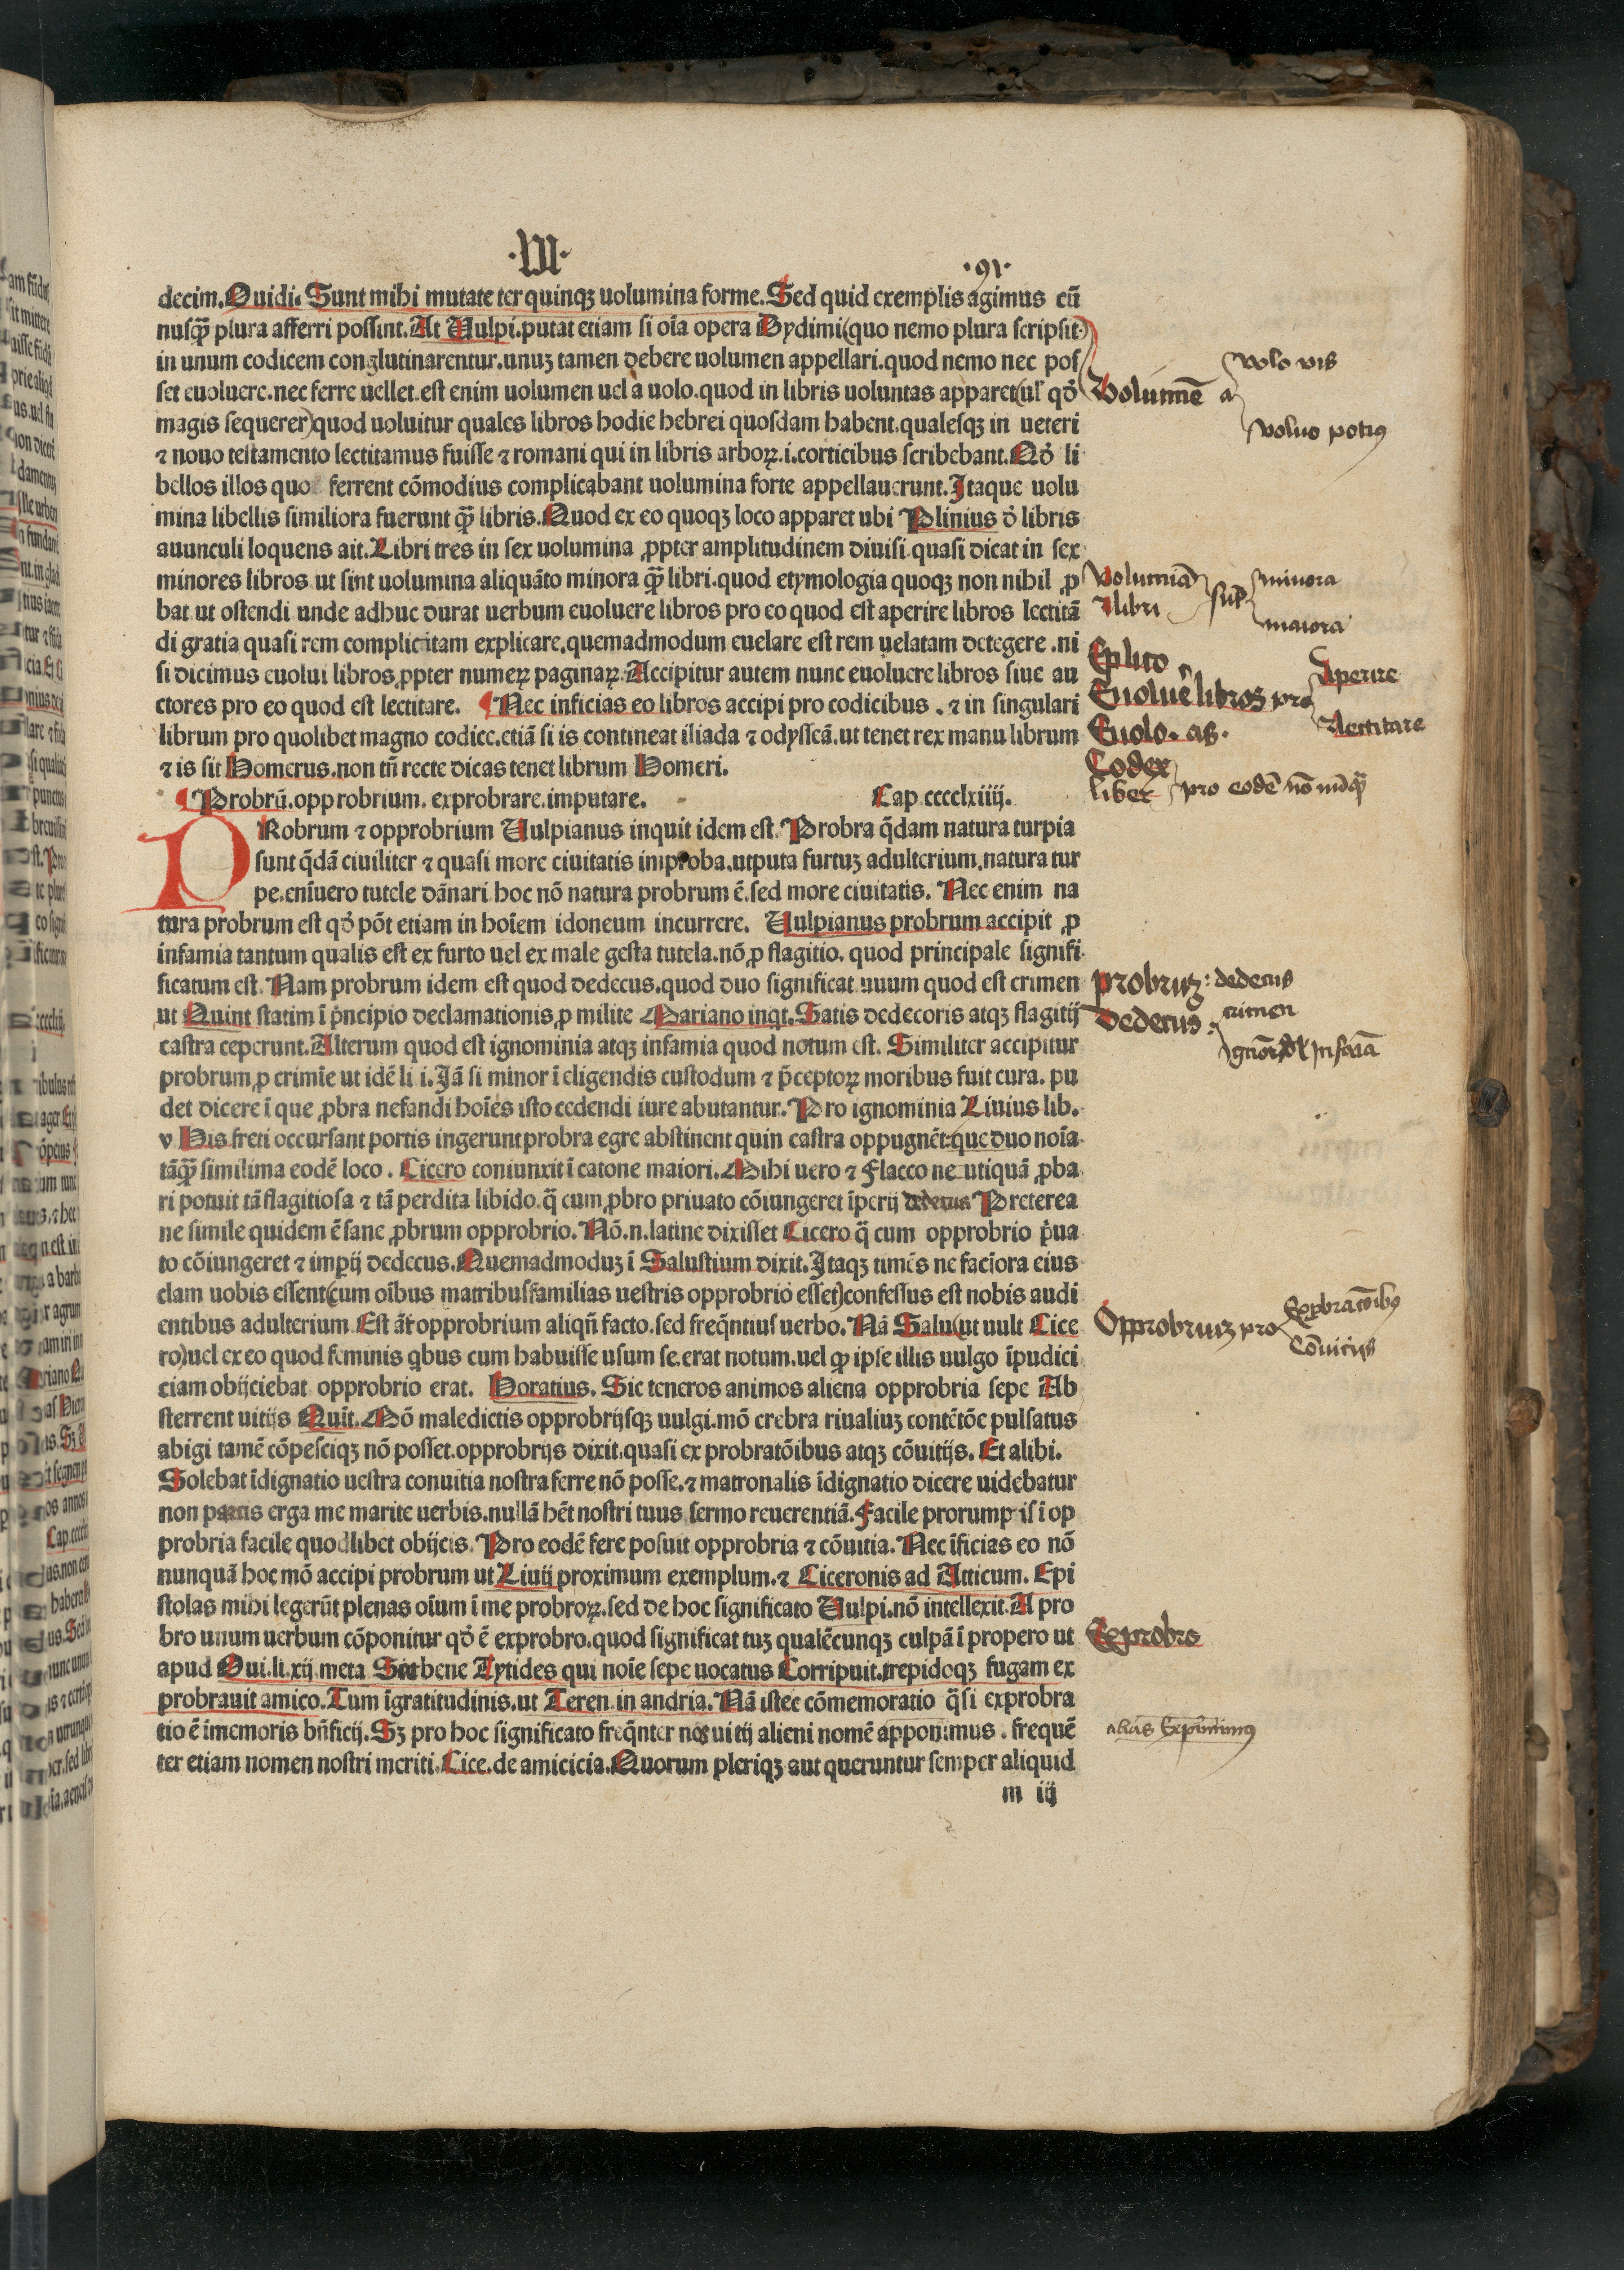 ·VI· ·91·
decim. Ouidi. Sunt mihi mutate ter quinqꝫ uolumina forme. Sed quid exemplis agimus cũ
nusꝗ̃ plura afferri possint. At Vulpi. putat etiam si oĩa opera Dydimi (quo nemo plura scripsit)
in unum codicem conglutinarentur. unuꝫ tamen debere uolumen appellari. quod nemo nec pos
set euoluere. nec ferre uellet. est enim uolumen uel a uolo. quod in libris uoluntas apparet (ul' qď
magis sequerer) quod uoluitur quales libros hodie hebrei quosdam habent. qualesqꝫ in ueteri
⁊ nouo testamento lectitamus fuisse ⁊ romani qui in libris arboꝝ. i. corticibus scribebant. Qď li
bellos illos quo ferrent cõmodius complicabant uolumina forte appellauerunt. Itaque uolu
mina libellis similiora fuerunt ꝗ̃ libris. Quod ex eo quoqꝫ loco apparet ubi Plinius ď libris
auunculi loquens ait. Libri tres in sex uolumina ꝓpter amplitudinem diuisi. quasi dicat in sex
minores libros. ut sint uolumina aliquãto minora ꝗ̃ libri. quod etymologia quoqꝫ non nihil ꝓ
bat ut ostendi unde adhuc durat uerbum euoluere libros pro eo quod est aperire libros lectitã
di gratia quasi rem complicitam explicare. quemadmodum euelare est rem uelatam detegere. ni
si dicimus euolui libros ꝓpter numeꝝ paginaꝝ. Accipitur autem nunc euoluere libros siue au
ctores pro eo quod est lectitare. ¶ Nec inficias eo libros accipi pro codicibus. ⁊ in singulari
librum pro quolibet magno codice. etiã si is contineat iliada ⁊ odysseã. ut tenet rex manu librum
⁊ is sit Homerus. non tñ recte dicas tenet librum Homeri.
¶ Probrũ. opprobrium. exprobrare. imputare. Cap cccclxiiij.
PRobrum ⁊ opprobrium Vulpianus inquit idem est. Probra q̃dam natura turpia
sunt q̃dã ciuiliter ⁊ quasi more ciuitatis improba. utputa furtuꝫ adulterium. natura tur
pe. enĩuero tutele dãnari hoc nõ natura probrum ẽ. sed more ciuitatis. Nec enim na
tura probrum est qď põt etiam in hoĩem idoneum incurrere. Vulpianus probrum accipit ꝓ
infamia tantum qualis est ex furto uel ex male gesta tutela. nõ ꝓ flagitio. quod principale signifi
ficatum est. Nam probrum idem est quod dedecus. quod duo significat. unum quod est crimen
ut Quint statim ĩ p̃ncipio declamationis ꝓ milite Mariano inqt. Satis dedecoris atqꝫ flagitij
castra ceperunt. Alterum quod est ignominia atqꝫ infamia quod notum est. Similiter accipitur
probrum ꝓ crimĩe ut idẽ li i. Iã si minor ĩ eligendis custodum ⁊ p̃ceptoꝝ moribus fuit cura. pu
det dicere ĩ que ꝓbra nefandi hoĩes isto cedendi iure abutantur. Pro ignominia Liuius lib.
v His freti occursant portis ingerunt probra egre abstinent quin castra oppugnẽt. que duo noĩa
tãꝗ̃ similima eodẽ loco. Cicero coniunxit ĩ catone maiori. Mihi uero ⁊ Flacco ne utiquã ꝓba
ri potuit tã flagitiosa ⁊ tã perdita libido. q̃ cum ꝓbro priuato cõiungeret ĩperij dedecus Preterea
ne simile quidem ẽ sane ꝓbrum opprobrio. Nõ. n. latine dixisset Cicero q̃ cum opprobrio p̃ua
to cõiungeret ⁊ imꝑij dedecus. Quemadmoduꝫ ĩ Salustium dixit. Itaqꝫ timẽs ne faciora eius
clam uobis essent (cum oĩbus matribusfamilias uestris opprobrio esset) confessus est nobis audi
entibus adulterium. Est ãt opprobrium aliqñ facto. sed freq̃ntius uerbo. Nã Salu (ut uult Cice
ro) uel ex eo quod feminis qbus cum habuisse usum se. erat notum. uel ꝙ ipse illis uulgo ĩpudici
ciam obijciebat opprobrio erat. Horatius. Sic teneros animos aliena opprobria sepe Ab
sterrent uitijs Quĩt. Mõ maledictis opprobrijsqꝫ uulgi. mõ crebra riualiuꝫ contẽtõe pulsatus
abigi tamẽ cõpesciqꝫ nõ posset. opprobrijs dixit. quasi ex probratõibus atqꝫ cõuitijs. Et alibi.
Solebat ĩdignatio uestra conuitia nostra ferre nõ posse. ⁊ matronalis ĩdignatio dicere uidebatur
non parcis erga me marite uerbis. nullã hẽt nostri tuus sermo reuerentiã. Facile prorumpis ĩ op
probria facile quodlibet obijcis. Pro eodẽ fere posuit opprobria ⁊ cõuitia. Nec ĩficias eo nõ
nunquã hoc mõ accipi probrum ut Liuij proximum exemplum. ⁊ Ciceronis ad Atticum. Epi
stolas mihi legerũt plenas oĩum ĩ me probroꝝ. sed de hoc significato Vulpi. nõ intellexit. A pro
bro unum uerbum cõponitur qď ẽ exprobro. quod significat tuꝫ qualẽcunqꝫ culpã ĩ propero ut
apud Oui. li. xij meta bene Aytides qui noĩe sepe uocatus Corripuit. trepidoqꝫ fugam ex
probrauit amico. Tum ĩgratitudinis. ut Teren. in andria. Nã istec cõmemoratio q̃si exprobra
tio ẽ ĩmemoris bñficij. Sꝫ pro hoc significato freq̃nter nos uitij alieni nomẽ apponimus. frequẽ
ter etiam nomen nostri meriti. Cice. de amicicia. Quorum pleriqꝫ aut queruntur semper aliquid
m iij
volo vis
Volumẽ a
voluo potiꝰ
Volumiã minora
⁊ libri
maiora
Explico
Aperire
Euoluẽ libros pro
Lectitare
Euolo. as.
Codex
liber pro eodẽ
probruꝫ: dedecus
Dedecus: crimen
Exprobratõibꝰ
Opprobriuꝫ pro
Cõuitijs
Exprobro
alias Exprimimꝰ